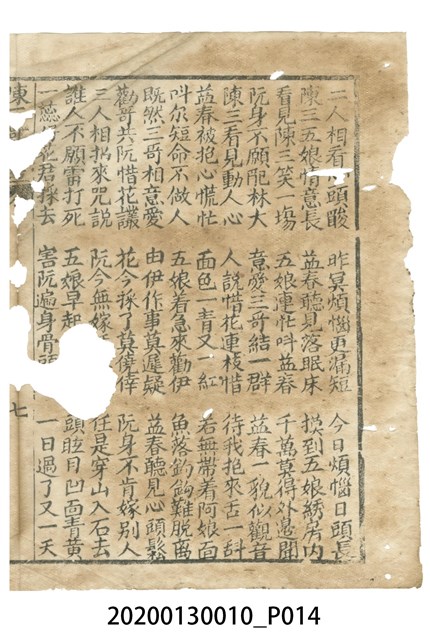 二人相看頭酸　昨冥煩惱更漏短　今日煩惱日頭長
陳三五娘情意長　益春聽見落眠床　摸到五娘綉房內
看見陳三笑一場　五娘連忙叫益春　千萬莫得外邊聞
阮身不願配林大　意愛三哥結一群　益春一貌似觀音
陳三看見動人心　人說惜花連枝惜　待我抱來舌一斟
益春被抱心慌忙　面色一青又一紅　若無帶着阿娘面
叫尔短命不做人　五娘着急來勸伊　魚落釣鉤難脫离
既然三哥相意愛　由伊作事莫遲疑　益春聽見心頭鬆
勸哥共阮惜花叢　花今採了莫僥倖　阮身不肯嫁別人
三人相招來咒說　阮今無嫁　任是穿山入石去
誰人不願雷打死　五娘早起　頭眩目凹面青黃
一蕊花君採去　害阮遍身骨　一日過了又一天
陳　七
20200130010_P014